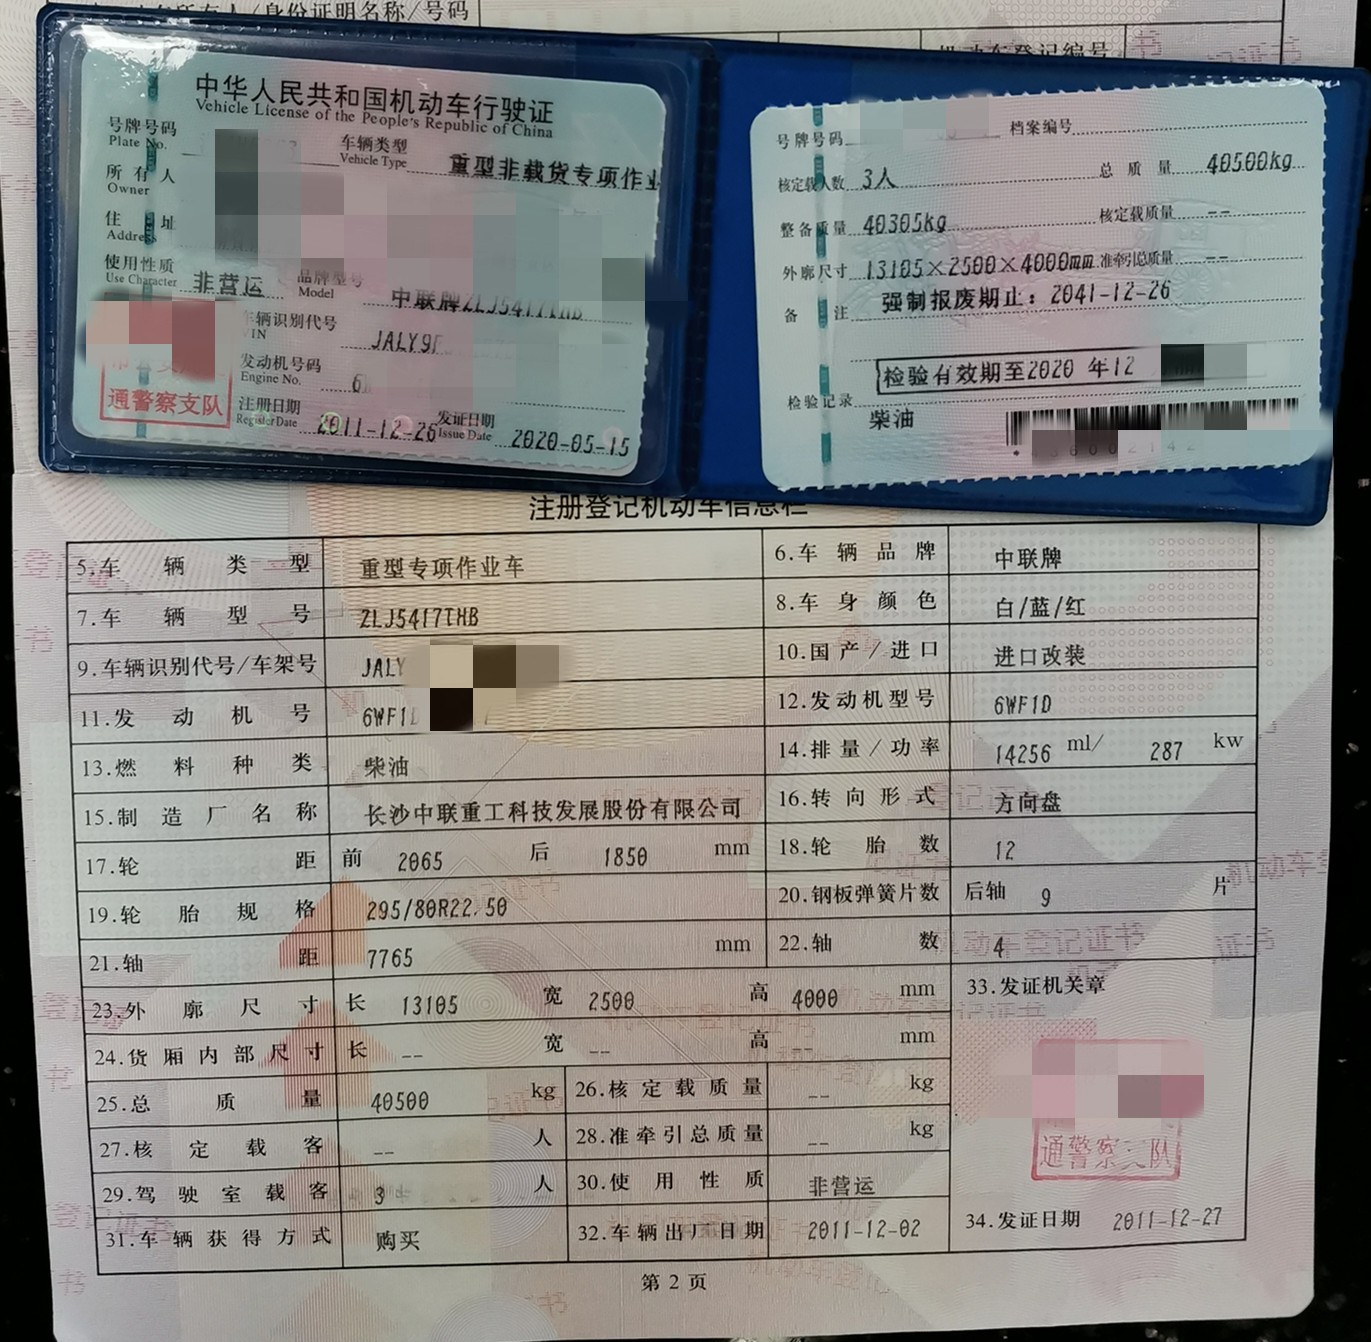 所有人/身份证明名称/号码
机动车登记编号
中华人民共和国机动车行驶证
Vehicle License of the People's Republic of China
号牌号码
Plate No.
车辆类型
Vehicle Type
重型非载货专项作业
所有人
Owner
住址
Address
使用性质
Use Character
非营运
品牌型号
Model
中联牌ZLJ5417THB
车辆识别代号
VIN
JALY9
发动机号码
Engine No.
6
通警察支队
注册日期
Register Date
2011-12-26
发证日期
Issue Date
2020-05-15
号牌号码
档案编号
核定载人数 3人
总质量 40500kg
整备质量 40305kg
核定载质量 --
外廓尺寸 13105×2500×4000mm
准牵引总质量 --
备注 强制报废期止：2041-12-26
检验有效期至2020 年12
检验记录
柴油
注册登记机动车信息栏
5.车辆类型 重型专项作业车 6.车辆品牌 中联牌
7.车辆型号 ZLJ5417THB 8.车身颜色 白/蓝/红
9.车辆识别代号/车架号 JALY 10.国产/进口 进口改装
11.发动机号 6WF1 12.发动机型号 6WF1D
13.燃料种类 柴油 14.排量/功率 14256 ml/ 287 kw
15.制造厂名称 长沙中联重工科技发展股份有限公司 16.转向形式 方向盘
17.轮距 前 2065 后 1850 mm 18.轮胎数 12
19.轮胎规格 295/80R22.50 20.钢板弹簧片数 后轴 9 片
21.轴距 7765 mm 22.轴数 4
23.外廓尺寸 长 13105 宽 2500 高 4000 mm 33.发证机关章
24.货厢内部尺寸 长 -- 宽 -- 高 -- mm
25.总质量 40500 kg 26.核定载质量 -- kg
27.核定载客 -- 人 28.准牵引总质量 -- kg
通警察支队
29.驾驶室载客 3 人 30.使用性质 非营运
31.车辆获得方式 购买 32.车辆出厂日期 2011-12-02 34.发证日期 2011-12-27
第 2 页